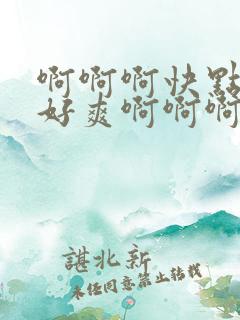 啊啊啊快點
好爽啊啊啊
諶北新
未经同意禁止转载